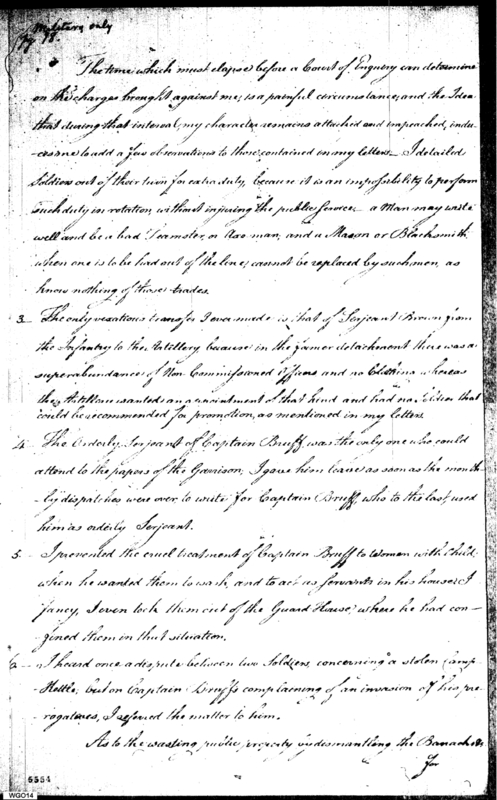 only
The time which must elapse before a Court of Enquiry can determine
on the charges brought against me, is a painful circumstance, and the Idea
that during that interval, my character remains attached and impeached, indu-
-ces me to add a few observations to those contained in my letters. I detailed
Soldiers out of their turn for extra duty, because it is an impossibility to perform
such duty in rotation, without injuring the public Service. a Man may write
well and be a bad Teamster, or Axe man, and a Mason or Blacksmith,
when one is to be had out of the line, cannot be replaced by such men, as
know nothing of those trades.
3 The only vexatious transfer I ever made is that of Serjeant Brown from
the Infantry to the Artillery because in the former detachment there was a
superabundance of Non Commissioned officers and no Clothing whereas
the Artillery wanted an appointment of that kind and had no Soldier that
could be recommended for promotion, as mentioned in my letters.
4 The Orderly Serjeant of Captain Bruff was the only one who could
attend to the papers of the Garrison, I gave him leave as soon as the month-
-ly dispatches were over to write for Captain Bruff, who to the last, used
him as orderly Serjeant.
5 I prevented the cruel treatment of Captain Bruff to Women with Child
when he wanted them to wash, and to act as servants in his house, I
fancy, I even took them out of the Guard House, where he had con-
-fined them in that situation.
6 I heard once a dispute between two Soldiers concerning a stolen Camp
Kettle, but on Captain Bruff's complaining of an invasion of his pre-
-rogatives, I referred the matter to him.
As to the wasting public property by dismantling the Barracks
for
5554
WGO14